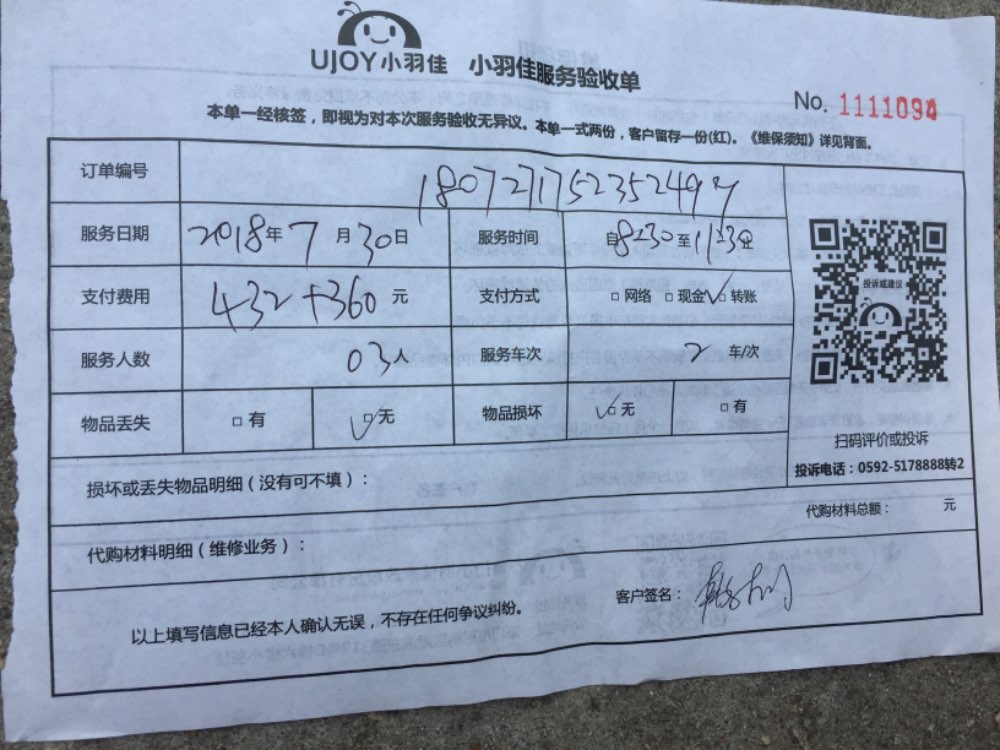 UJOY小羽佳 小羽佳服务验收单
No. 1111094
本单一经核签，即视为对本次服务验收无异议。本单一式两份，客户留存一份(红)。《维保须知》详见背面。
订单编号 180727175235249
服务日期 2018年7月30日 服务时间 自8:30至11:30止
支付费用 432+360元 支付方式 □网络 □现金✓□转账
服务人数 03人 服务车次 2车/次
物品丢失 □有 ✓□无 物品损坏 ✓□无 □有
投诉或建议
扫码评价或投诉
投诉电话：0592-5178888转2
损坏或丢失物品明细（没有可不填）：
代购材料总额： 元
代购材料明细（维修业务）：
客户签名：
以上填写信息已经本人确认无误，不存在任何争议纠纷。